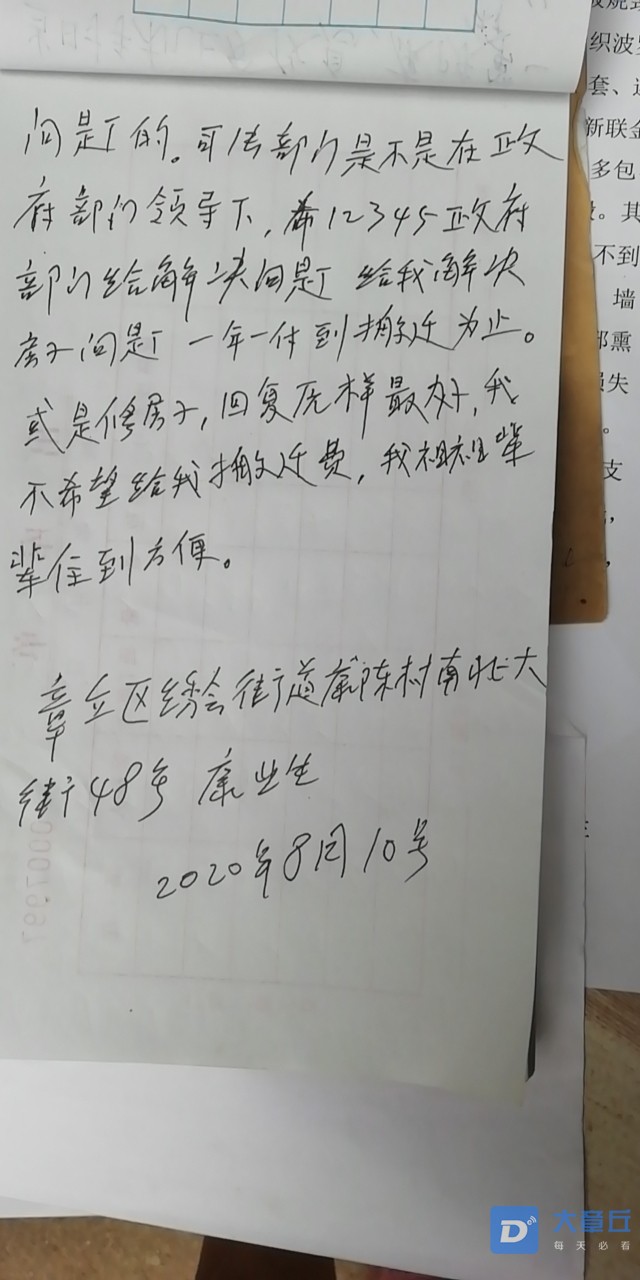 问是丁的。司法部门是不是在政
府部门领导下，希12345政府
部门给解决问是丁 给我解决
房子问是丁 一年一付到搬迁为止。
或是修房子，回复历样最好，我
不希望给我搬迁费，我祖祖辈
辈住到方便。
章丘区绣会街道康陈村南北大
街48号 康业生
2020年8月10号
织波
套、
新联金
多包
。其
不到
墙
部熏
损失
。
支
大章丘
每天必看